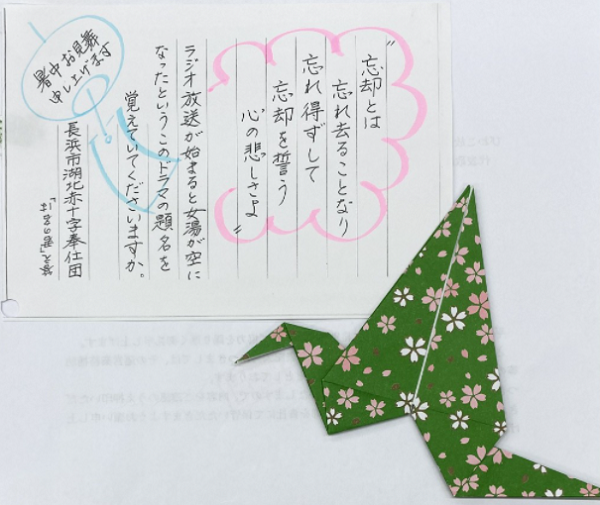 〝忘却とは
忘れ去ることなり
忘れ得ずして
忘却を誓う
心の悲しさよ〟
ラジオ放送が始まると女湯が空に
なったというこのドラマの題名を
覚えていてくださいますか。
暑中お見舞
申し上げます
長浜市湖北赤十字奉仕団